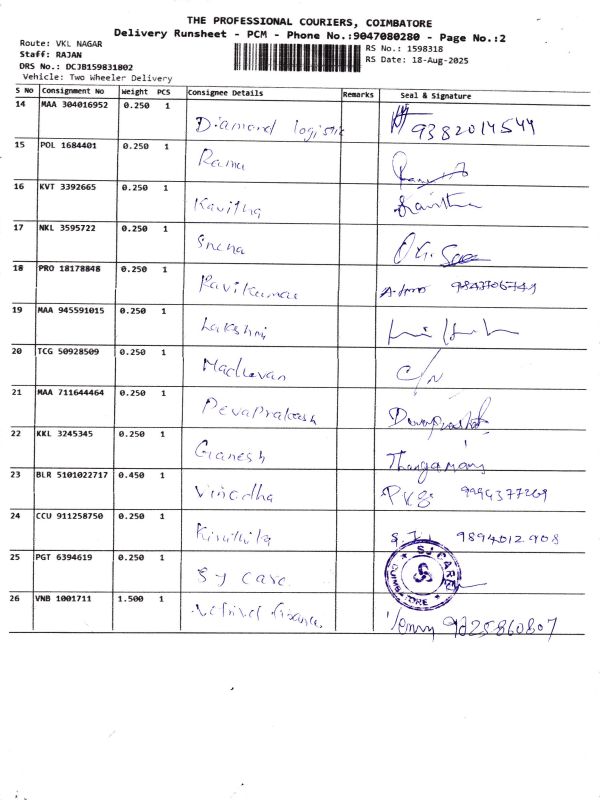 THE PROFESSIONAL COURIERS, COIMBATORE
Delivery Runsheet - PCM - Phone No.:9047080280 - Page No.:2
Route: VKL NAGAR
Staff: RAJAN
DRS No.: DCJB159831802
Vehicle: Two Wheeler Delivery
RS No.: 1598318
RS Date: 18-Aug-2025
S No Consignment No Weight PCS Consignee Details Remarks Seal & Signature
14 MAA 304016952 0.250 1 Diamond logistic 9382014544
15 POL 1684401 0.250 1 Rama
16 KVT 3392665 0.250 1 Kavitha
17 NKL 3595722 0.250 1 Snena
18 PRO 18178848 0.250 1 Ravikumar
19 MAA 945591015 0.250 1 Lakshmi
20 TCG 50928509 0.250 1 Madhevan C/N
21 MAA 711644464 0.250 1 DevaPrakash
22 KKL 3245345 0.250 1 Ganesh Thangamani
23 BLR 5101022717 0.450 1 Vinodha P.V.G. 9994377269
24 CCU 911258750 0.250 1 Kiruthika 9894012908
25 PGT 6394619 0.250 1 SJ Care SJ CARE COIMBATORE
26 VNB 1001711 1.500 1 9025860807